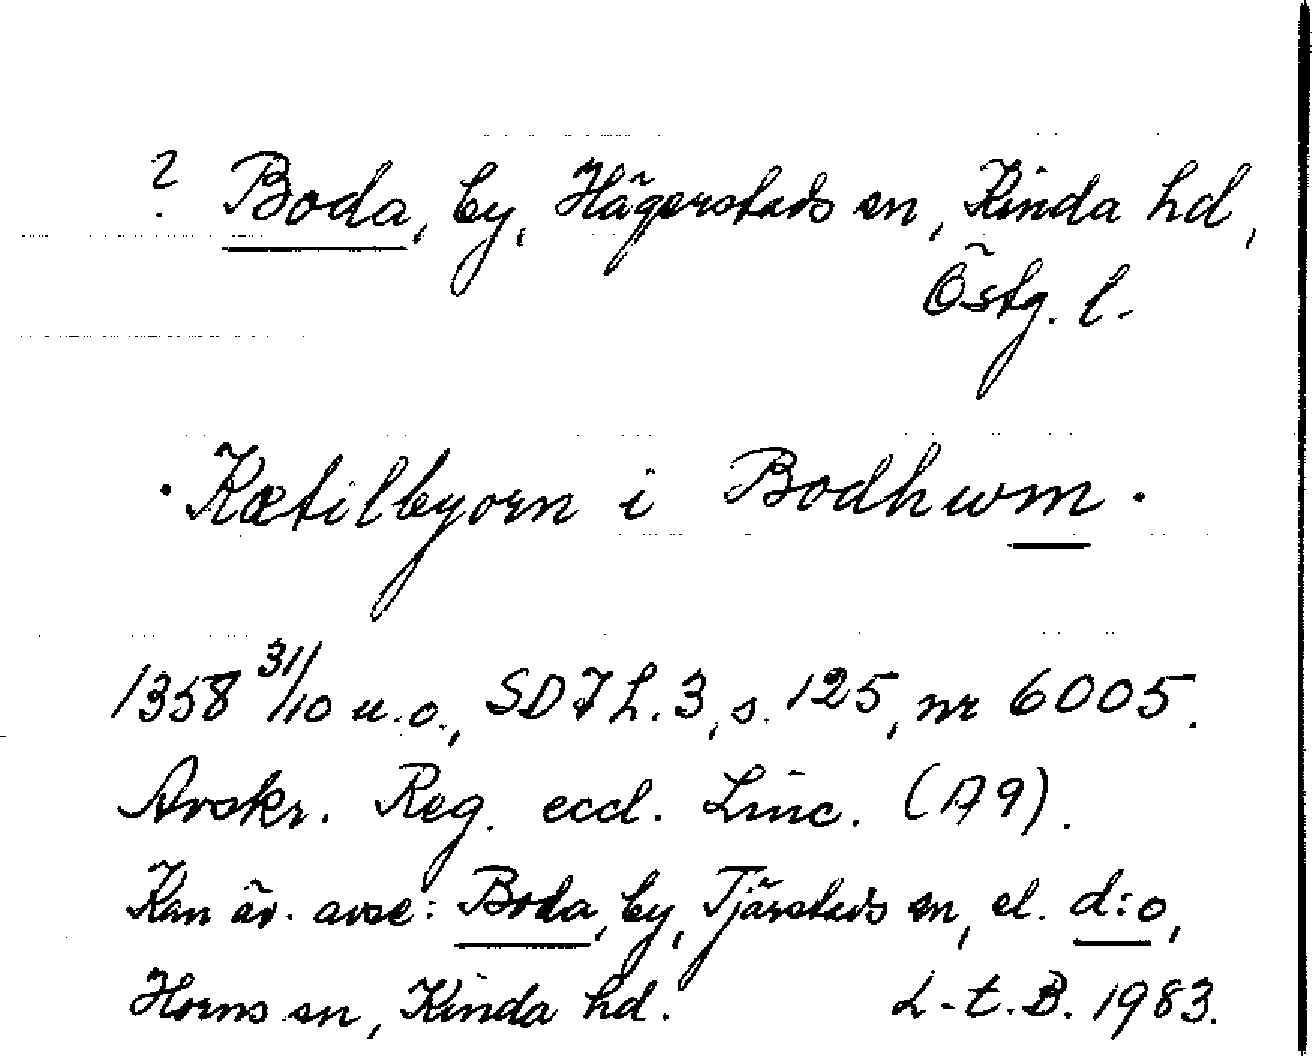 ? Boda, by, Hägerstads sn, Kinda hd,
Östg. l.
· Kætilbyorn i Bodhwm ·
1358 31/10 u.o., SD 7 h. 3, s. 125, nr 6005.
Avskr. Reg. eccl. Linc. (A 9).
Kan äv. avse: Boda, by, Tjärstads sn, el. d:o,
Horns sn, Kinda hd. L-t.B. 1983.